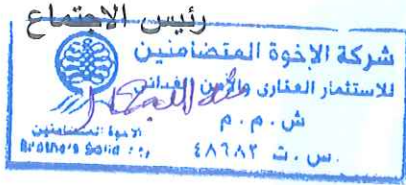 رئيس الاجتماع
شركة الإخوة المتضامنين
للاستثمار العقاري والأمن الغذائي
ش . م . م
الاخوة المتضامنين
Brothers Solid
س . ت ٤٨٦٨٢